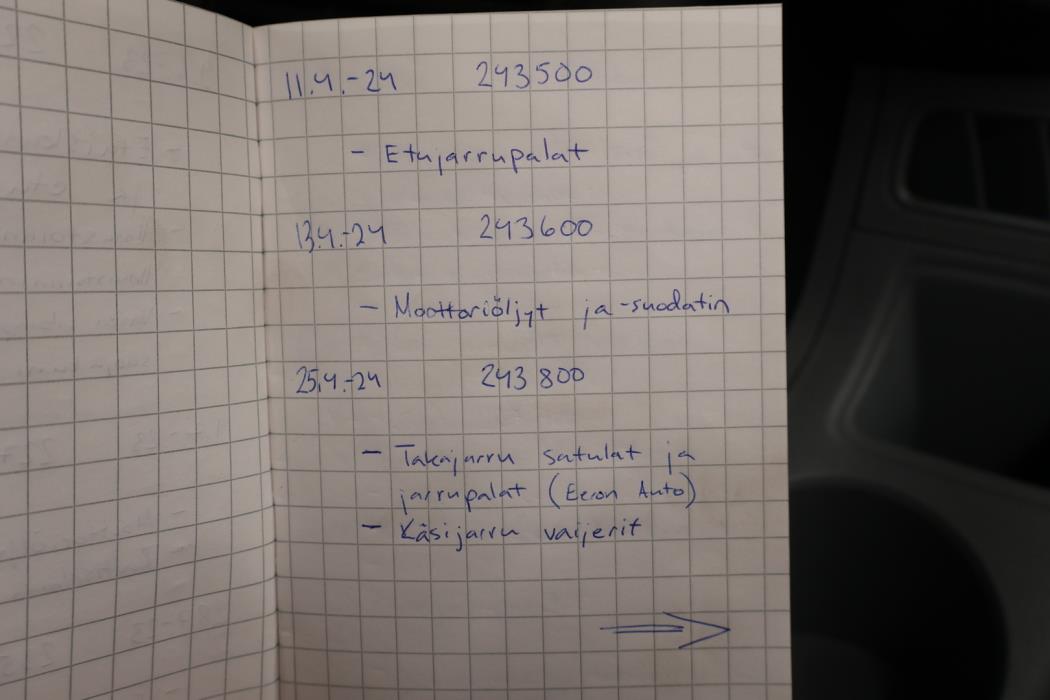 11.4.-24 243500
- Etujarrupalat
13.4.-24 243600
- Moottoriöljyt ja -suodatin
25.4.-24 243 800
- Takajarru satulat ja
jarrupalat (Eeron Auto)
- Käsijarru vaijerit